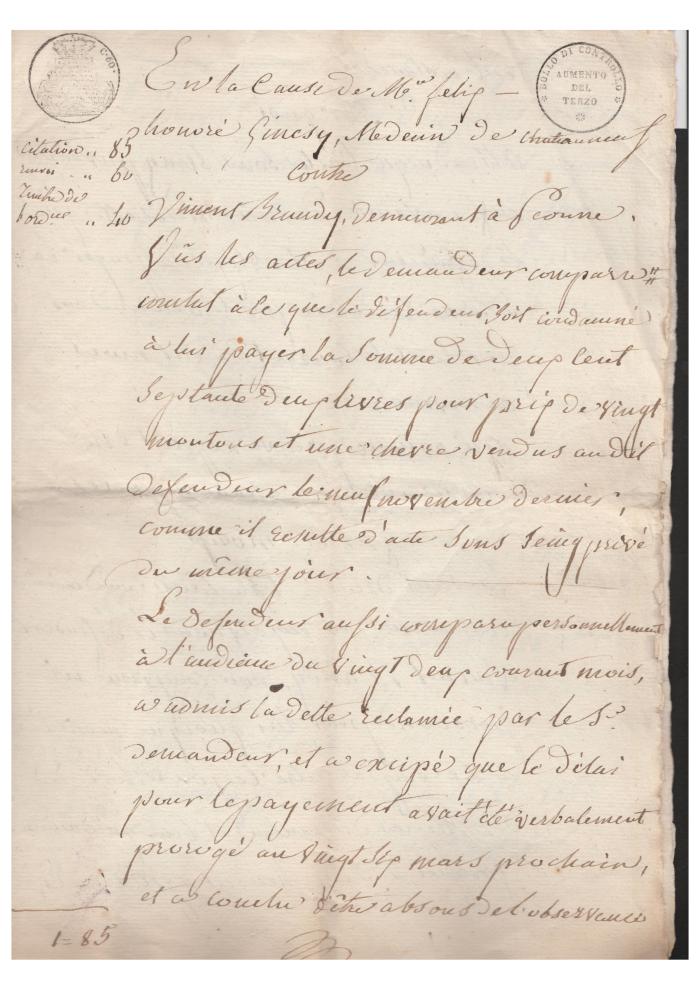 C. 60.
BOLLO DI CONTROLLO
AUMENTO
DEL
TERZO
En la Cause de Mre felix
honoré Ginesy, Médecin de chateauneuf
contre
citation „ 85
envoi „ 60
Timbre de
bordre „ 40
Vincent Baudy, demeurant à Peonne.
Vûs les actes, le demandeur comparu
conclut à ce que le défendeur soit condamné
à lui payer la Somme de deux Cent
Septante deux livres pour prix de vingt
moutons et une chevre vendus au dit
défendeur le neuf novembre dernier,
comme il Resulte d'acte Sous Seing privé
du même jour.
Le défendeur aussi comparu personnellement
à l'audience du vingt deux courant mois,
a admis la dette réclamée par le Sr.
demandeur, et a excipé que le délai
pour le payement avait été verbalement
prorogé au vingt Six mars prochain,
et a conclu d'être absous de l'observance
1 = 85